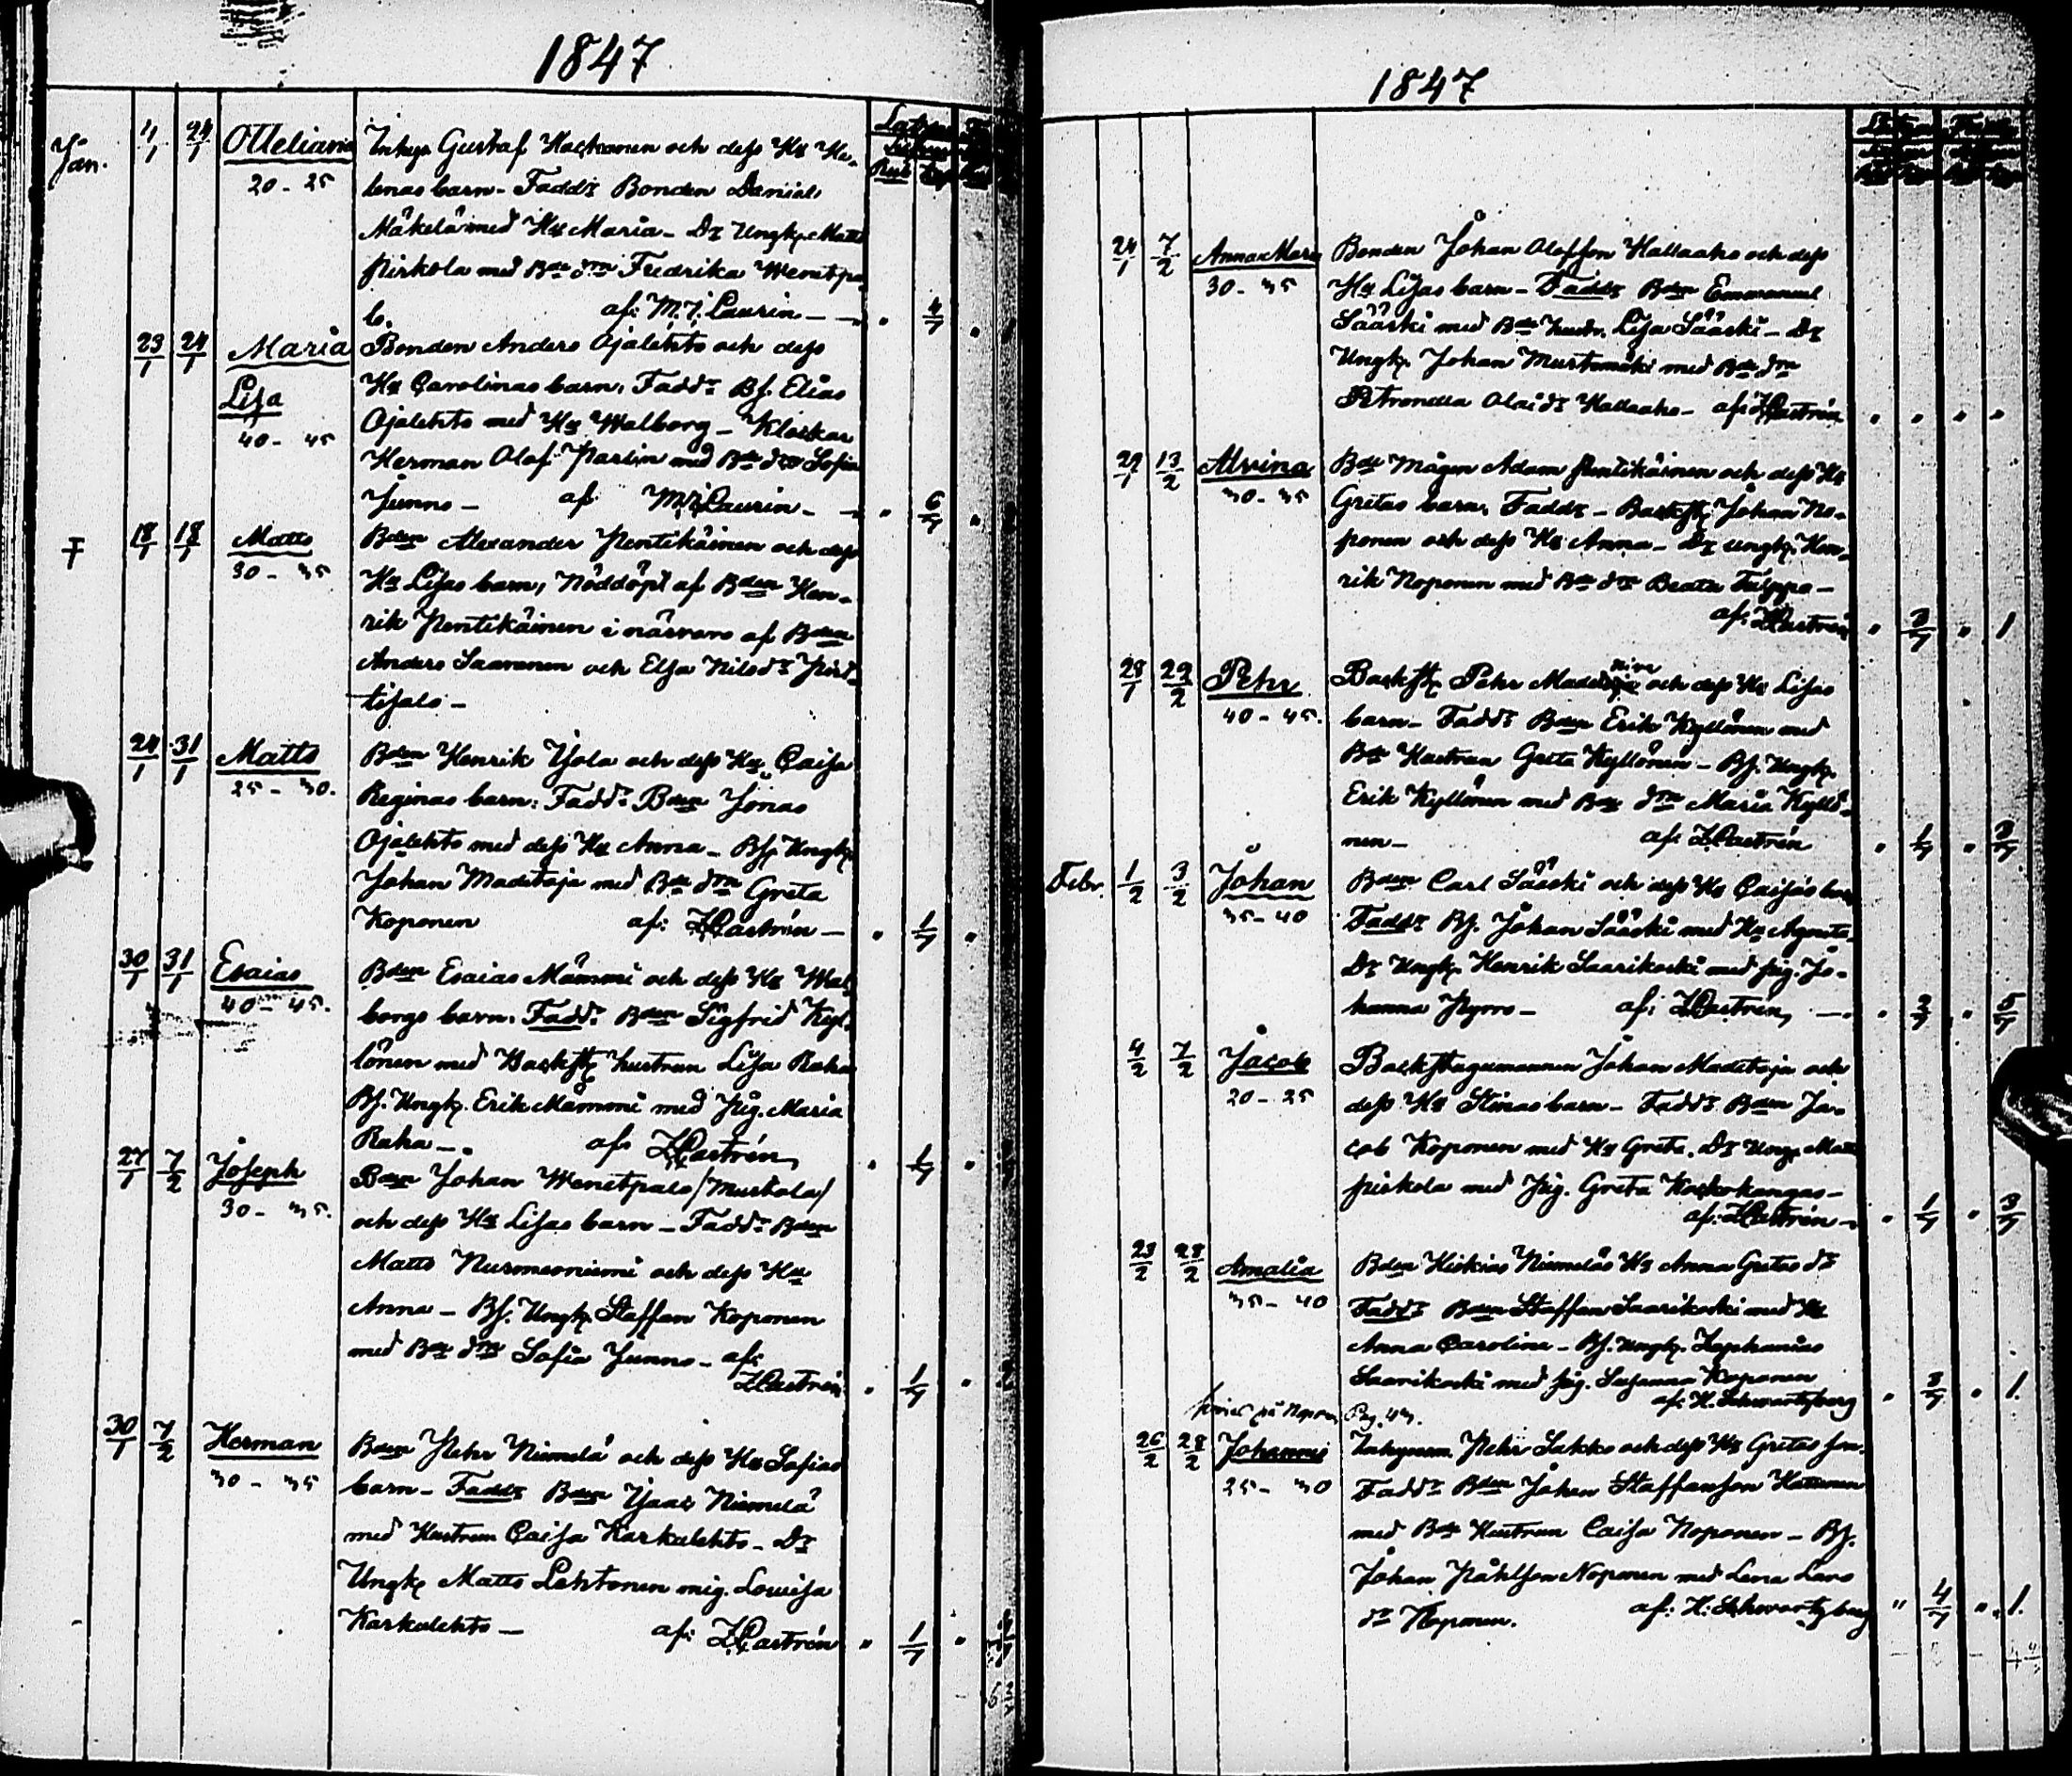 1847
Jan. 4/1 24/1 Otteliana Inhys. Gustaf Hackanen och dess Hu He-
20-25 lenas barn - Faddr Bonden Daniel
Mäkelä med Hu Maria - Dr Ungk. Matts
Pirkola med Bde dr Fredrika Wenetpa-
lo. af: M. J. Laurin - 4/7
23/1 24/1 Maria Bonden Anders Ojalehto och dess
Lisa Hu Carolinas barn. Faddr Bf. Elias
40-45 Ojalehto med Hu Walborg - Klockar
Herman Olof Parlin med Bde dr Sofia
Junno - af M. J. Laurin - 6/7
18/1 18/1 Matts Bden Alexander Pentikäinen och dess
30-35 Hu Lisas barn, Nöddöpt af Bden Hen-
rik Pentikäinen i närvaro af Bden
Anders Saaranen och Elsa Nilsdr Pirt-
tisalo -
24/1 31/1 Matts Bden Henrik Yola och dess Hu Caisa
25-30. Reginas barn: Faddr Bden Jonas
Ojalehto med dess Hu Anna - Bf. Ungk.
Johan Madetoja med Bde dr Greta
Koponen af: Z. Castrén - 1/7
30/1 31/1 Esaias Bden Esaias Mämmi och dess Hu Wal-
40-45. borgs barn. Faddr Bden Sigfrid Kyl-
lönen med Backstk hustrun Lisa Raha
Bf. Ungk. Erik Mämmi med Pig. Maria
Raha - af Z. Castrén 1/7
27/1 7/2 Joseph Bden Johan Wenetpalo /Mustola/
30-35. och dess Hu Lisas barn - Faddr Bden
Matts Nurmesniemi och dess Hu
Anna - Bf. Ungk. Staffan Koponen
med Bde dr Sofia Junno - af:
Z. Castrén 1/7
30/1 7/2 Herman Bden Pehr Niemelä och dess Hu Sofias
30-35 barn - Faddr Bden Isaac Niemelä
med Hustrun Caisa Karkulehto - Dr
Ungk. Matts Lehtonen m. pig. Lovisa
Karkulehto - af: Z. Castrén 1/7
1847
24/1 7/2 Anna Maria Bonden Johan Olofsson Hallaaho och dess
30-35 Hu Lisas barn - Faddr Bden Emmanuel
Sääski med Bde hustr. Lisa Sääski - Dr
Ungk. Johan Mustamäki med Bde dr
Petronella Olai dr Hallaaho - af: Z. Castrén
29/1 13/2 Alvina Bde Mågen Adam Pentikäinen och dess Hu
30-35 Gretas barn. Faddr - Backstk. Johan No-
ponen och dess Hu Anna - Dr ungk. Hen-
rik Noponen med Bde dr Beata Tulppo -
af: Z. Castrén 3/7 1
28/1 29/2 Pehr Backstk Pehr och dess Hu Lisas
40-45. barn - Faddr Bden Erik Kyllönen med
Bde Hustrun Greta Kyllönen - Bf. Ungk.
Erik Kyllönen med Bde dr Maria Kyllö-
nen - af: Z. Castrén 1/7 3/7
Febr. 1/2 3/2 Johan Bden Carl Sääski och dess Hu Caisas barn
35-40 Faddr Bf. Johan Sääski med Hu Agneta.
Dr Ungk. Henrik Saarikoski med Pig. Jo-
hanna Pyrro - af: Z. Castrén, 2/7 5/7
4/2 7/2 Jacob Backstugumannen Johan Madetoja och
20-25 dess Hu Stinas barn - Faddr Bden Ja-
cob Koponen med Hu Greta. Dr Ungk. Matts
Pirkola med Pig. Greta Koskokangas -
af: Z. Castrén - 1/7 3/7
23/2 28/2 Amalia Bden Hiskias Niemeläs Hu Anna Gretas dr
35-40 Faddr Bden Staffan Saarikoski med Hu
Anna Carolina - Bf. Ungk. Zephanias
Saarikoski med pig. Susanna Koponen
af: H. Schwartzberg 3/7 1.
Pag. 43.
26/2 28/2 Johannes Inhysem. Pehr Sakko och dess Hu Gretas son.
25-30 Faddr Bden Johan Staffansson Hattunen
med Bde Hustrun Caisa Noponen - Bf.
Johan Påhlsson Noponen med Lena Lars
dr Koponen. af: H. Schwartzberg 4/7 1.